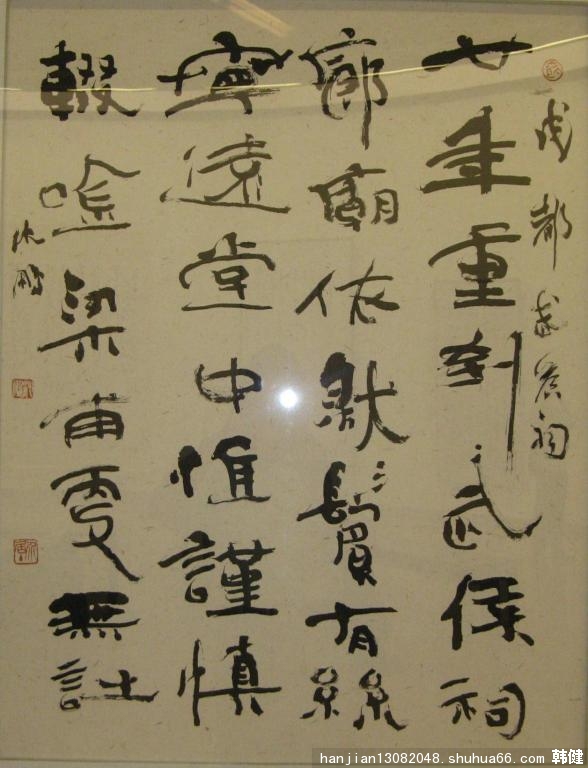 成都武侯祠
七年重到武侯祠
廊廟依然鬢有絲
寧遠堂中惟謹慎
輟吟梁甫更無詩
沈鵬
hanjian13082048.shuhua66.com 韩健